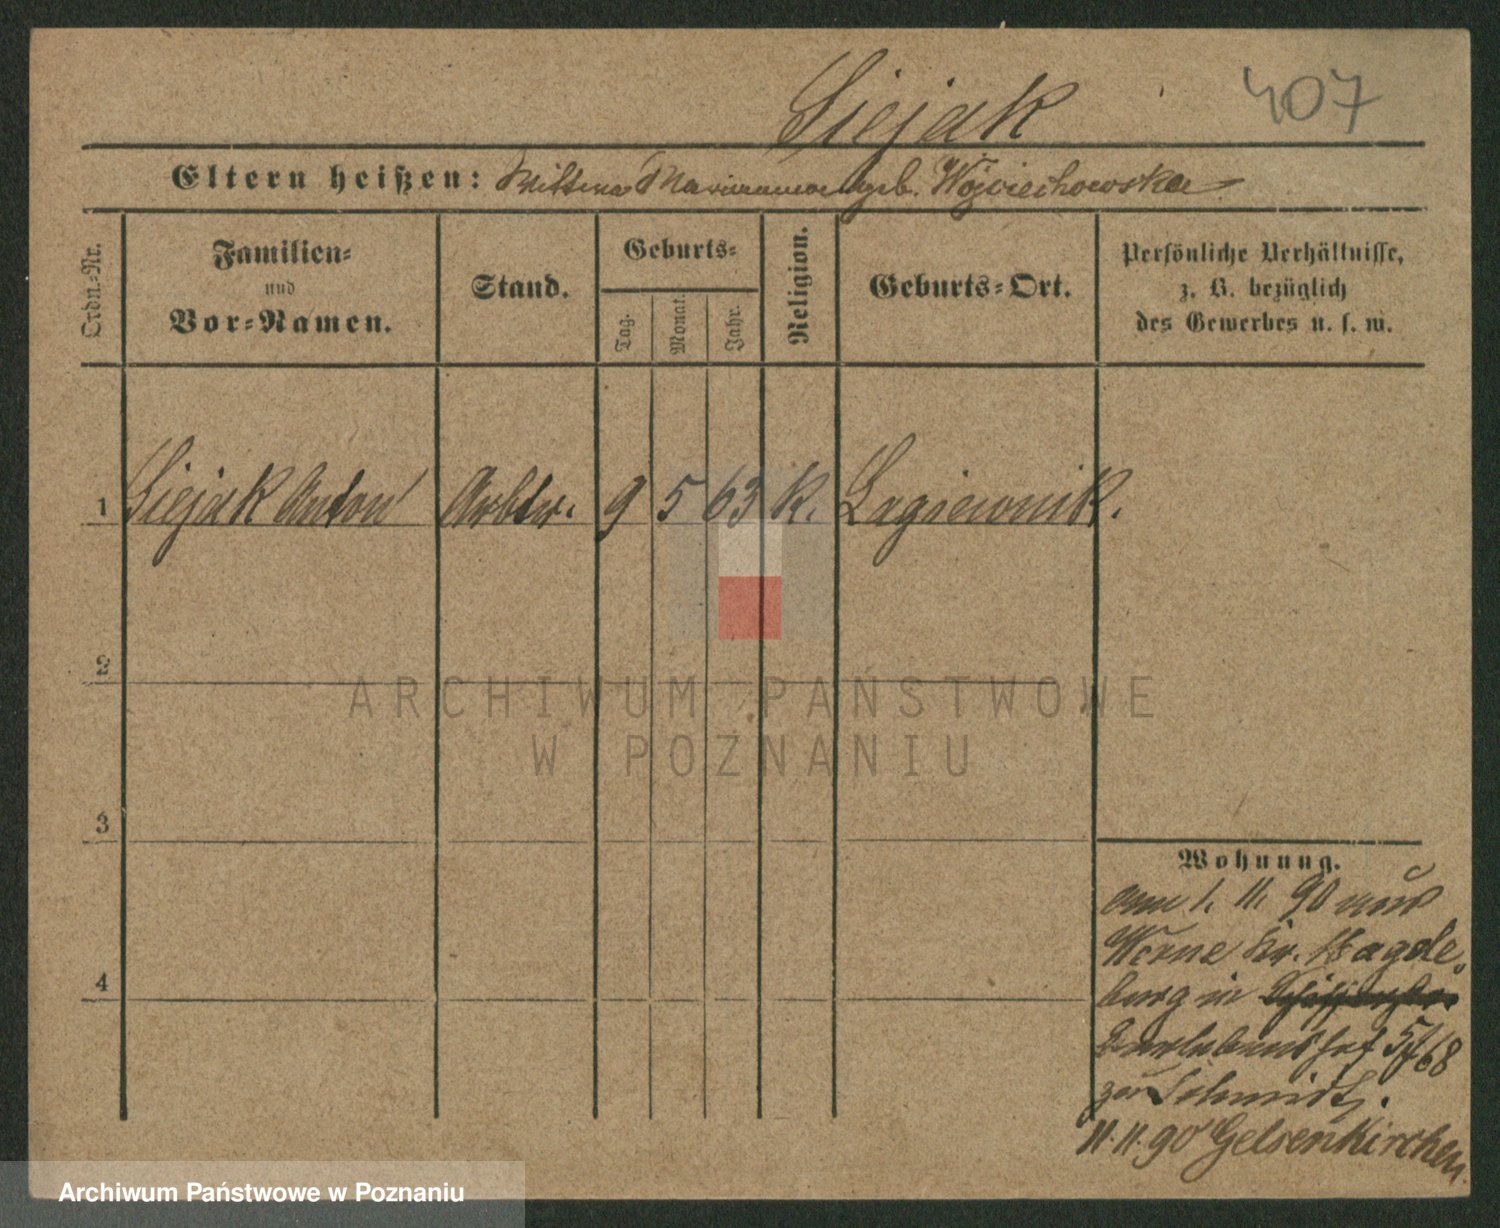 Siejak
407
Eltern heißen: Marianna geb. Wojciechowska
Ordn.-Nr.
Familien-
und
Vor-Namen.
Stand.
Geburts-
Tag.
Monat.
Jahr.
Religion.
Geburts-Ort.
Persönliche Verhältnisse,
z. B. bezüglich
des Gewerbes u. s. w.
1 Siejak Anton Arbtr. 9 5 63 K. Lagiewnik.
2
ARCHIWUM PAŃSTWOWE
W POZNANIU
3
4
Wohnung.
am 1. 11. 90 aus
Werne Kr. Magde-
burg in
5/68
zu Schmidt.
11. 11. 90 Gelsenkirchen.
Archiwum Państwowe w Poznaniu